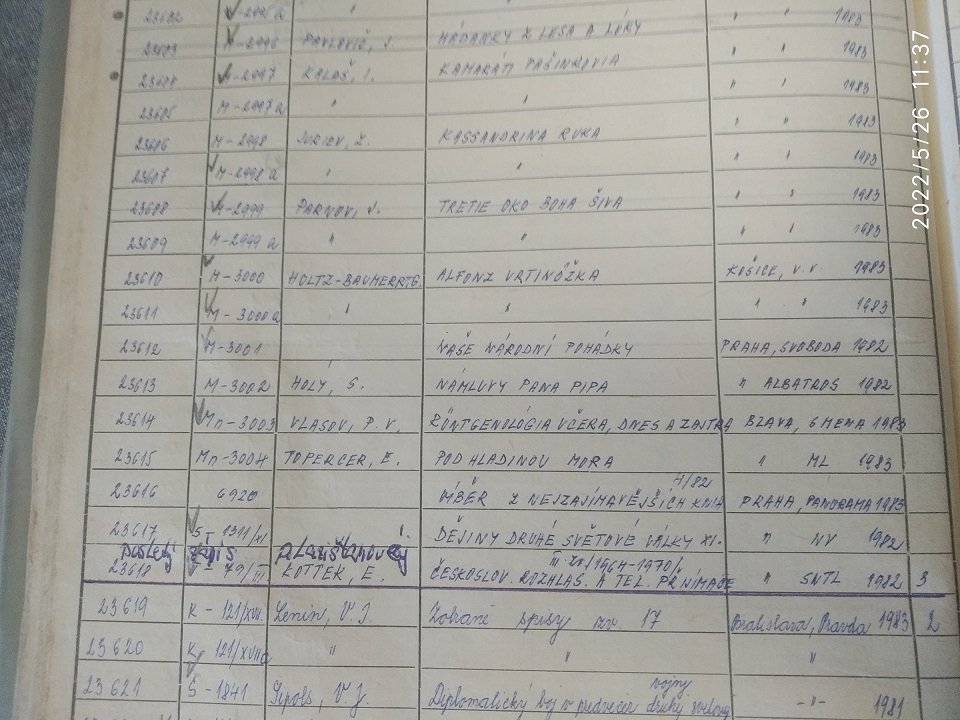 23602 M-2995a " " " 1983
23603 M-2996 PAVLOVIČ, J. HÁDANKY Z LESA A LÚKY " " 1983
23604 M-2997 KALAŠ, I. KAMARÁTI PAŠINKOVIA " " 1983
23605 M-2997a " " " " 1983
23606 M-2998 JURIEV, Z. KASSANDRINA RUKA " " 1983
23607 M-2998a " " " " 1983
23608 M-2999 PARNOV, J. TRETIE OKO BOHA ŠIVA " " 1983
23609 M-2999a " " " " 1983
23610 M-3000 HOLTZ-BAUMERT, G. ALFONZ VRTINÔŽKA KOŠICE, V.V. 1983
23611 M-3000a " " " " 1983
23612 M-3001 NAŠE NÁRODNÍ POHÁDKY PRAHA, SVOBODA 1982
23613 M-3002 HOLÝ, S. NÁMLUVY PANA PIPA " ALBATROS 1982
23614 Mn-3003 VLASOV, P. V. RÖNTGENOLÓGIA VČERA, DNES A ZAJTRA BLAVA, SMENA 1983
23615 Mn-3004 TOPERCER, E. POD HLADINOU MORA " ML 1983
4/82
23616 6920 VÍBĚR Z NEJZAJÍMAVĚJŠÍCH KNIH PRAHA, PANORAMA 1983
23617 S-1311/XI DĚJINY DRUHÉ SVĚTOVÉ VÁLKY XI. " NV 1982
posledý zápis
III-IV/1964-1970/
23618 T-79/III KOTTEK, E. ČESKOSLOV. ROZHLAS. A TEL. PŘNÍMAČE " SNTL 1982 3
23619 K-121/XVII. Lenin, V. I. Zobrané spisy zv. 17 Bratislava, Pravda 1983 2
23620 K-121/XVIIa " " "
vojny
23621 S-1841 Sipols, V. J. Diplomatický boj v predvečer druhej svetovej -"- 1981
2022/5/26 11:37